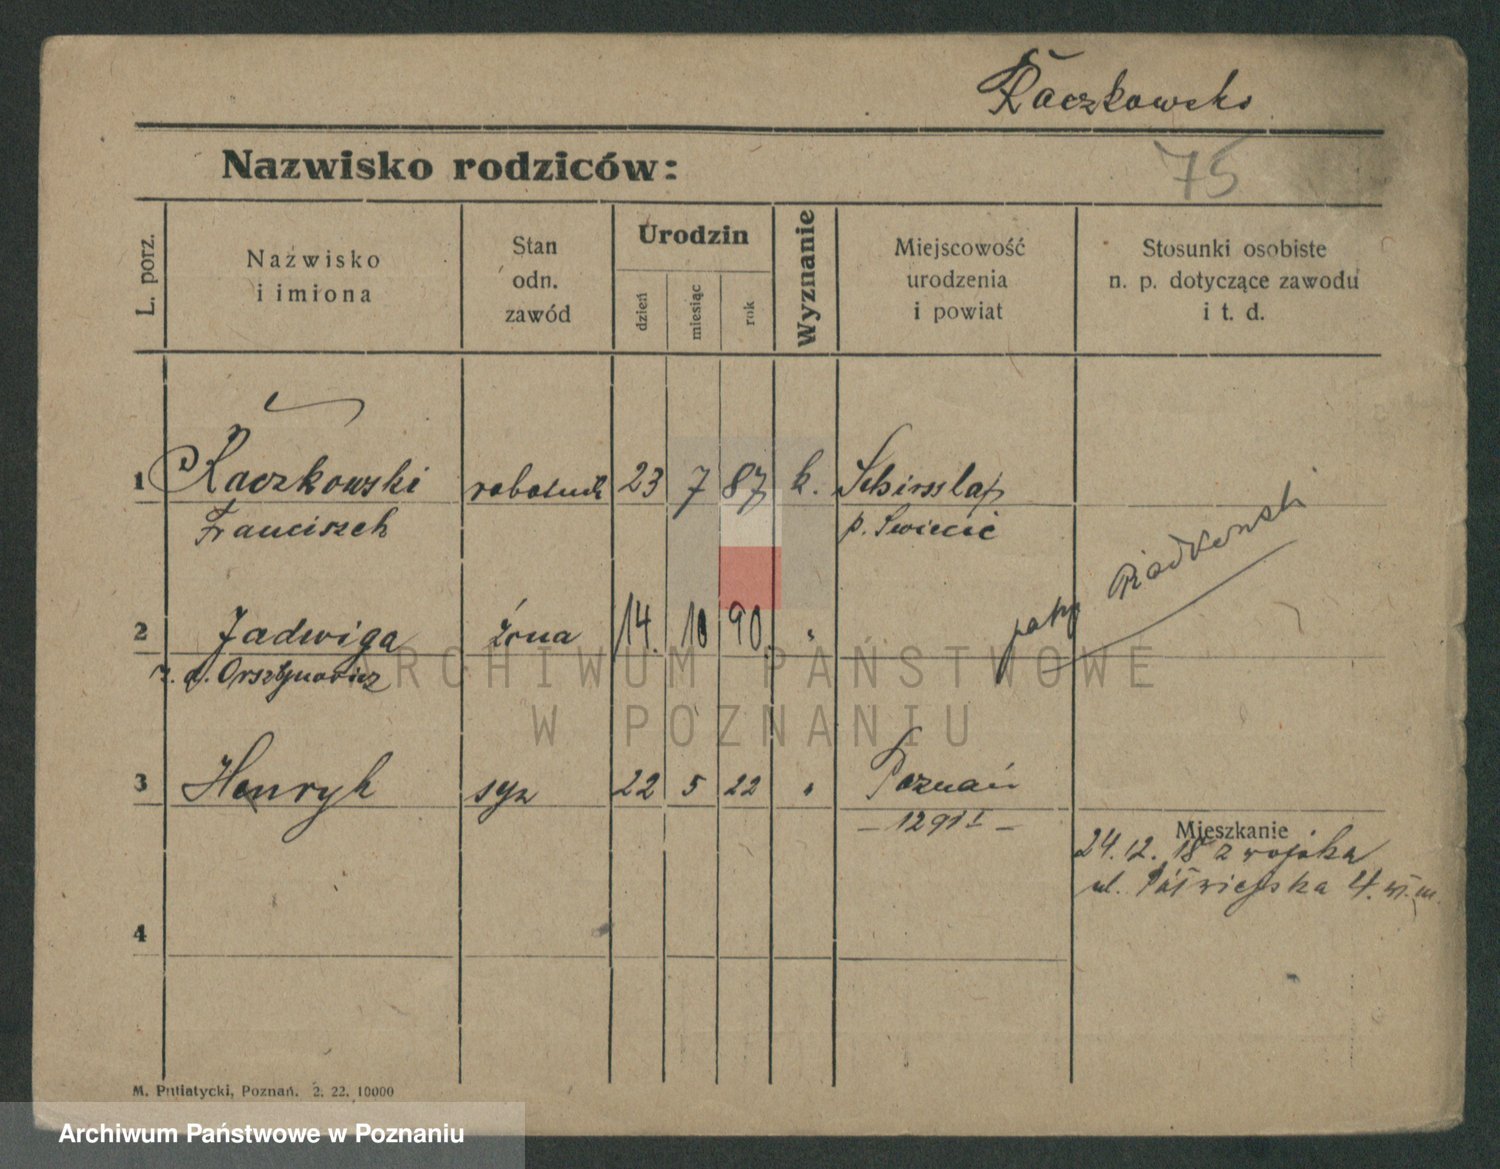 Raczkowski
75
Nazwisko rodziców:
L. porz.
Nazwisko
i imiona
Stan
odn.
zawód
Urodzin
dzień
miesiąc
rok
Wyznanie
Miejscowość
urodzenia
i powiat
Stosunki osobiste
n. p. dotyczące zawodu
i t. d.
1 Raczkowski robotnik 23 7 87 k.
Franciszek p. Swiecie
patrz Radkowski
2 Jadwiga żona 14. 10 90 "
z. d. Orsztynowicz
3 Henryk syn 22 5 22 " Poznań
— 1291 I —
Mieszkanie
24.12.18 z wojska
ul. Półwiejska 4.
4
M. Putiatycki, Poznań. 2. 22. 10000
ARCHIWUM PAŃSTWOWE
W POZNANIU
Archiwum Państwowe w Poznaniu